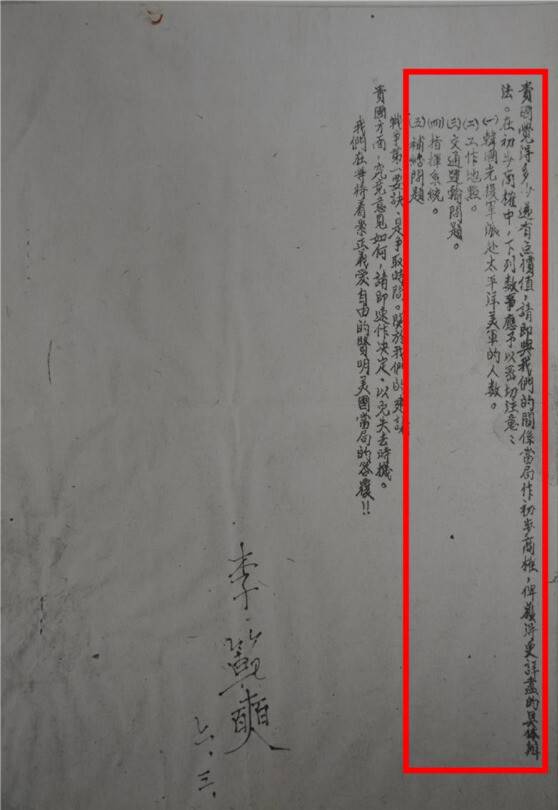 貴國覺得多少還有点價值，請即與我們的關係當局作初步商榷，俾獲得更詳盡的具体辦
法。在初步商榷中，下列数事應予以密切注意：
(一)韓國光復軍派赴太平洋美軍的人数。
(二)工作地點。
(三)交通運輸問題。
(四)指揮系統。
(五)補給問題
戰爭第一要訣，是爭取時間。関於我們的建議
貴國方面，究竟意見如何，請即速作决定，以免失去時機。
我們在等待着崇正義愛自由的賢明美國當局的答覆！！
李範奭
六．三．